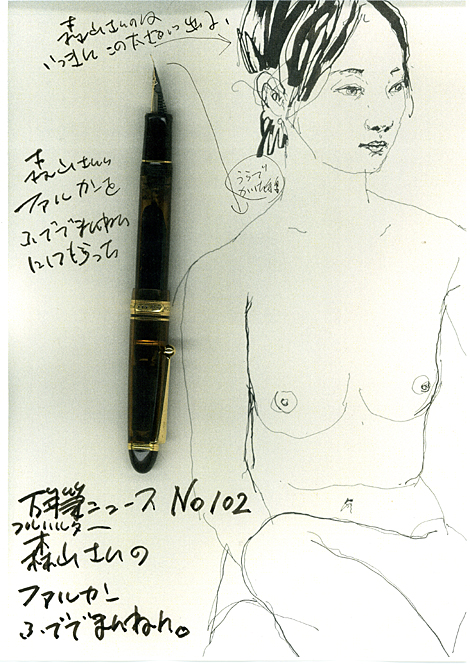 森山さんのは
この太さ 出る
うらで
森山さんに
ファルカンを
ふででまんねん
にしてもらった
万年筆ニュース No102
フルハルター
森山さんの
ファルカン
ふででまんねん。